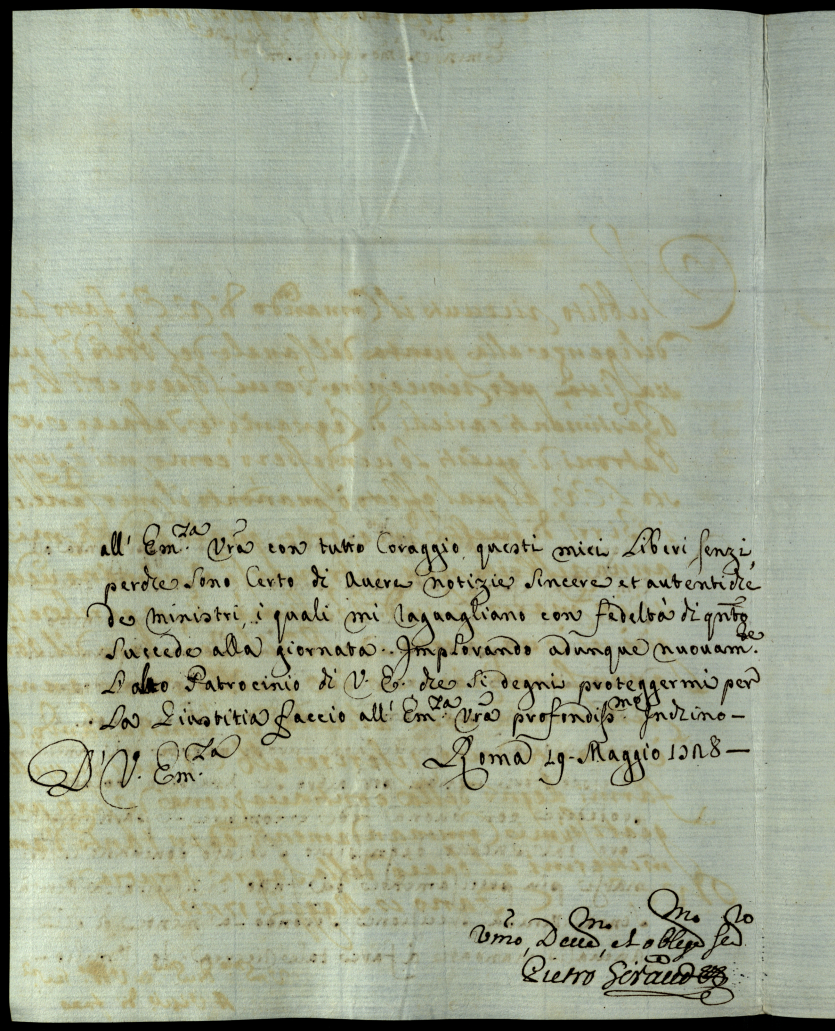 all' Em.za Vra con tutto Coraggio questi miei Liberi senzi,
perche sono Certo di Avere notizie sincere et autentiche
de ministri, i quali mi raguagliano con fedeltà di qnto
succede alla giornata. Implorando adunque nuouam.te
L'alto Patrocinio di V. E. che si degni proteggermi per
La Giustitia faccio all' Em.za Vra profondiss.mo Inchino –
D' V. Em.za Roma 19. Maggio 1728 –
Vmo, Deuo, et oblig.mo Se.ro
Pietro Giraud